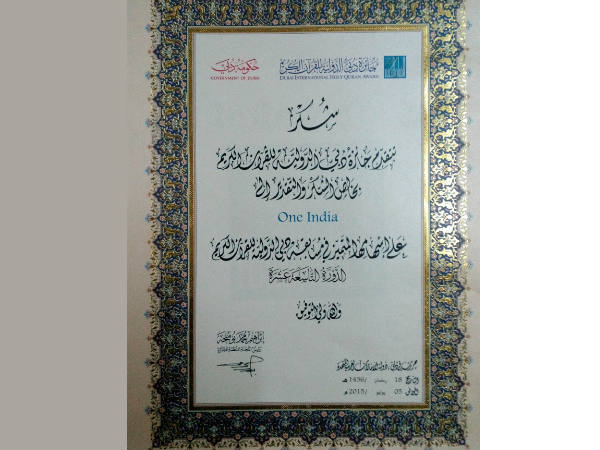 حكومة دبي
GOVERNMENT OF DUBAI
جائزة دبي الدولية للقرآن الكريم
DUBAI INTERNATIONAL HOLY QURAN AWARD
شكر
تتقدم جائزة دبي الدولية للقرآن الكريم
بخالص الشكر والتقدير إلى
One India
على إسهامها المتميز في مسابقة دبي الدولية للقرآن الكريم
الدورة التاسعة عشرة
والله ولي التوفيق
إبراهيم محمد بوملحه
18 رمضان 1436/ هـ
05 يوليو 2015/ م